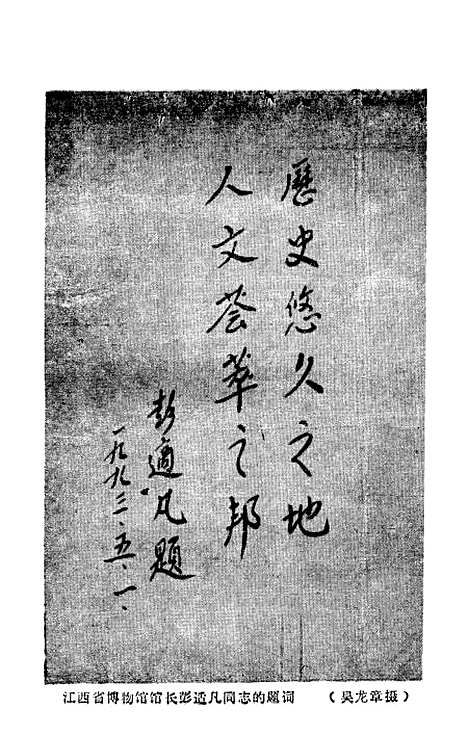 歷史悠久之地
人文荟萃之邦
彭適凡題
一九九三·五·一·
江西省博物馆馆长彭适凡同志的题词 （吴龙章摄）